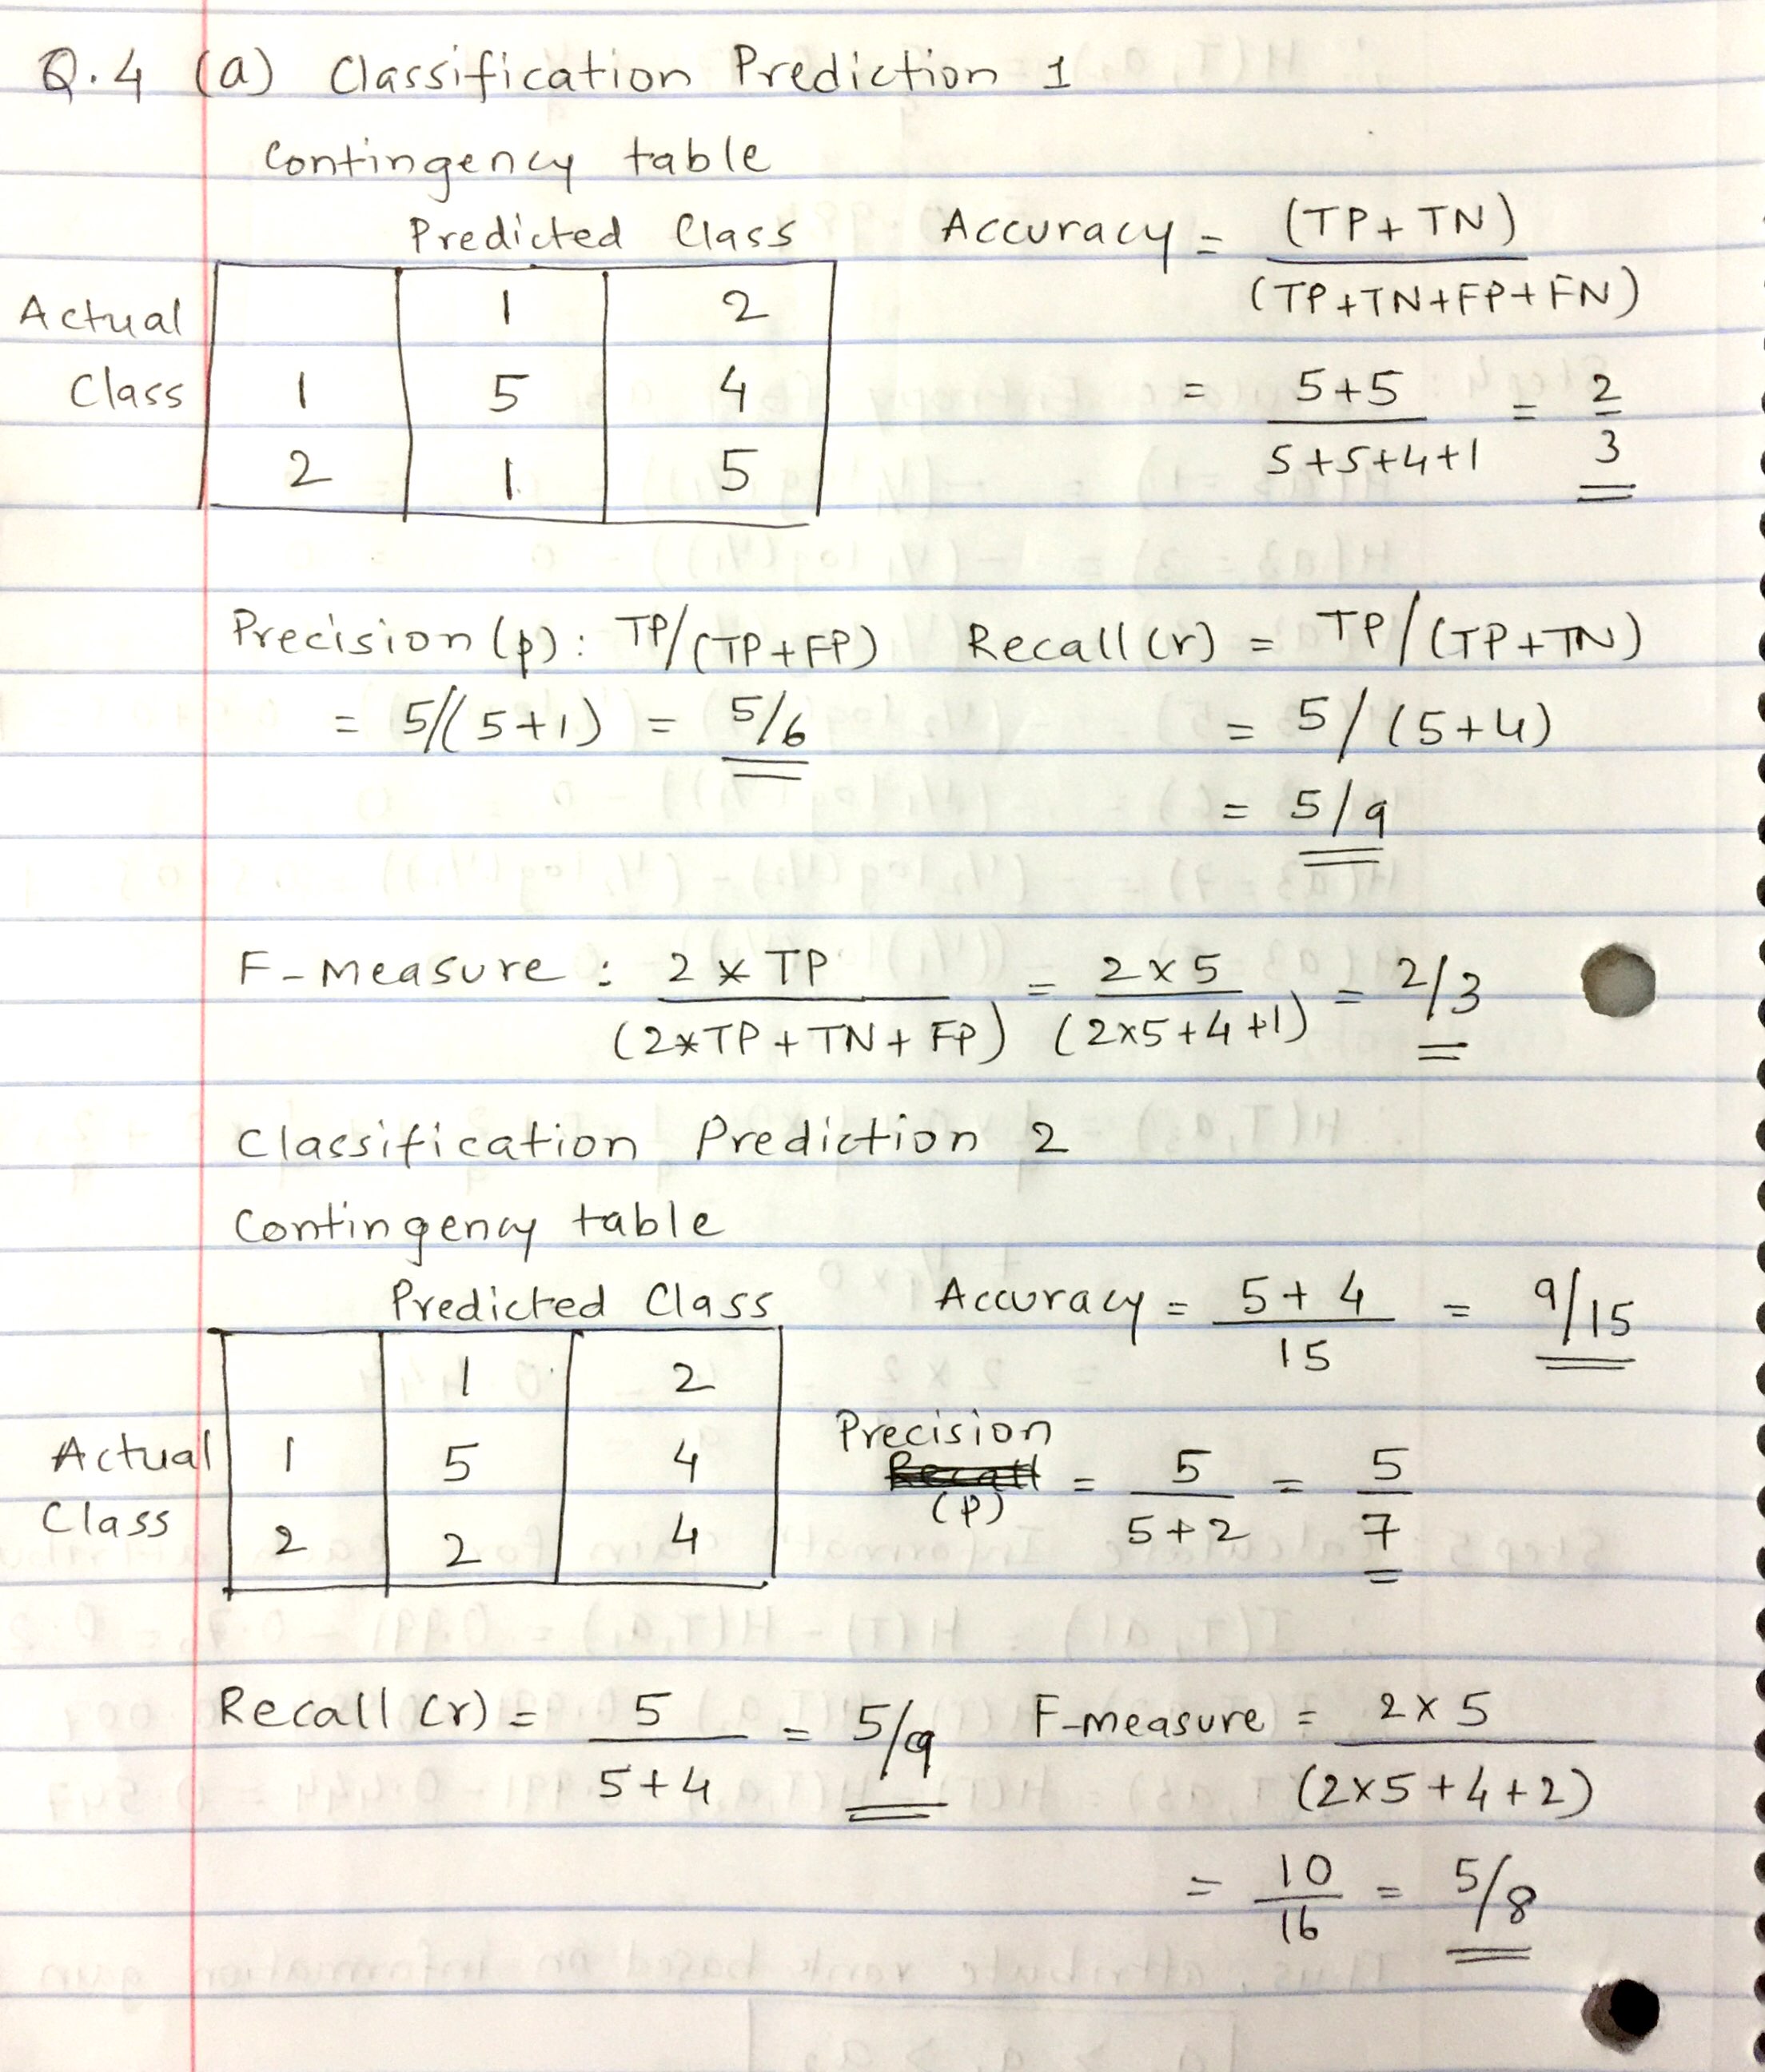 Q.4 (a) Classification Prediction 1
Contingency table
Predicted Class
Actual Class
1 2
1 5 4
2 1 5
Accuracy = (TP + TN) / (TP + TN + FP + FN)
= 5+5 / 5+5+4+1 = 2/3
Precision (p) : TP/(TP + FP)
= 5/(5+1) = 5/6
Recall (r) = TP/(TP + TN)
= 5/(5+4)
= 5/9
F-measure : 2 * TP / (2*TP + TN + FP) = 2×5 / (2×5+4+1) = 2/3
Classification Prediction 2
Contingency table
Predicted Class
Actual Class
1 2
1 5 4
2 2 4
Accuracy = 5+4 / 15 = 9/15
Precision (p) = 5 / 5+2 = 5/7
Recall (r) = 5 / 5+4 = 5/9
F-measure = 2×5 / (2×5+4+2)
= 10/16 = 5/8